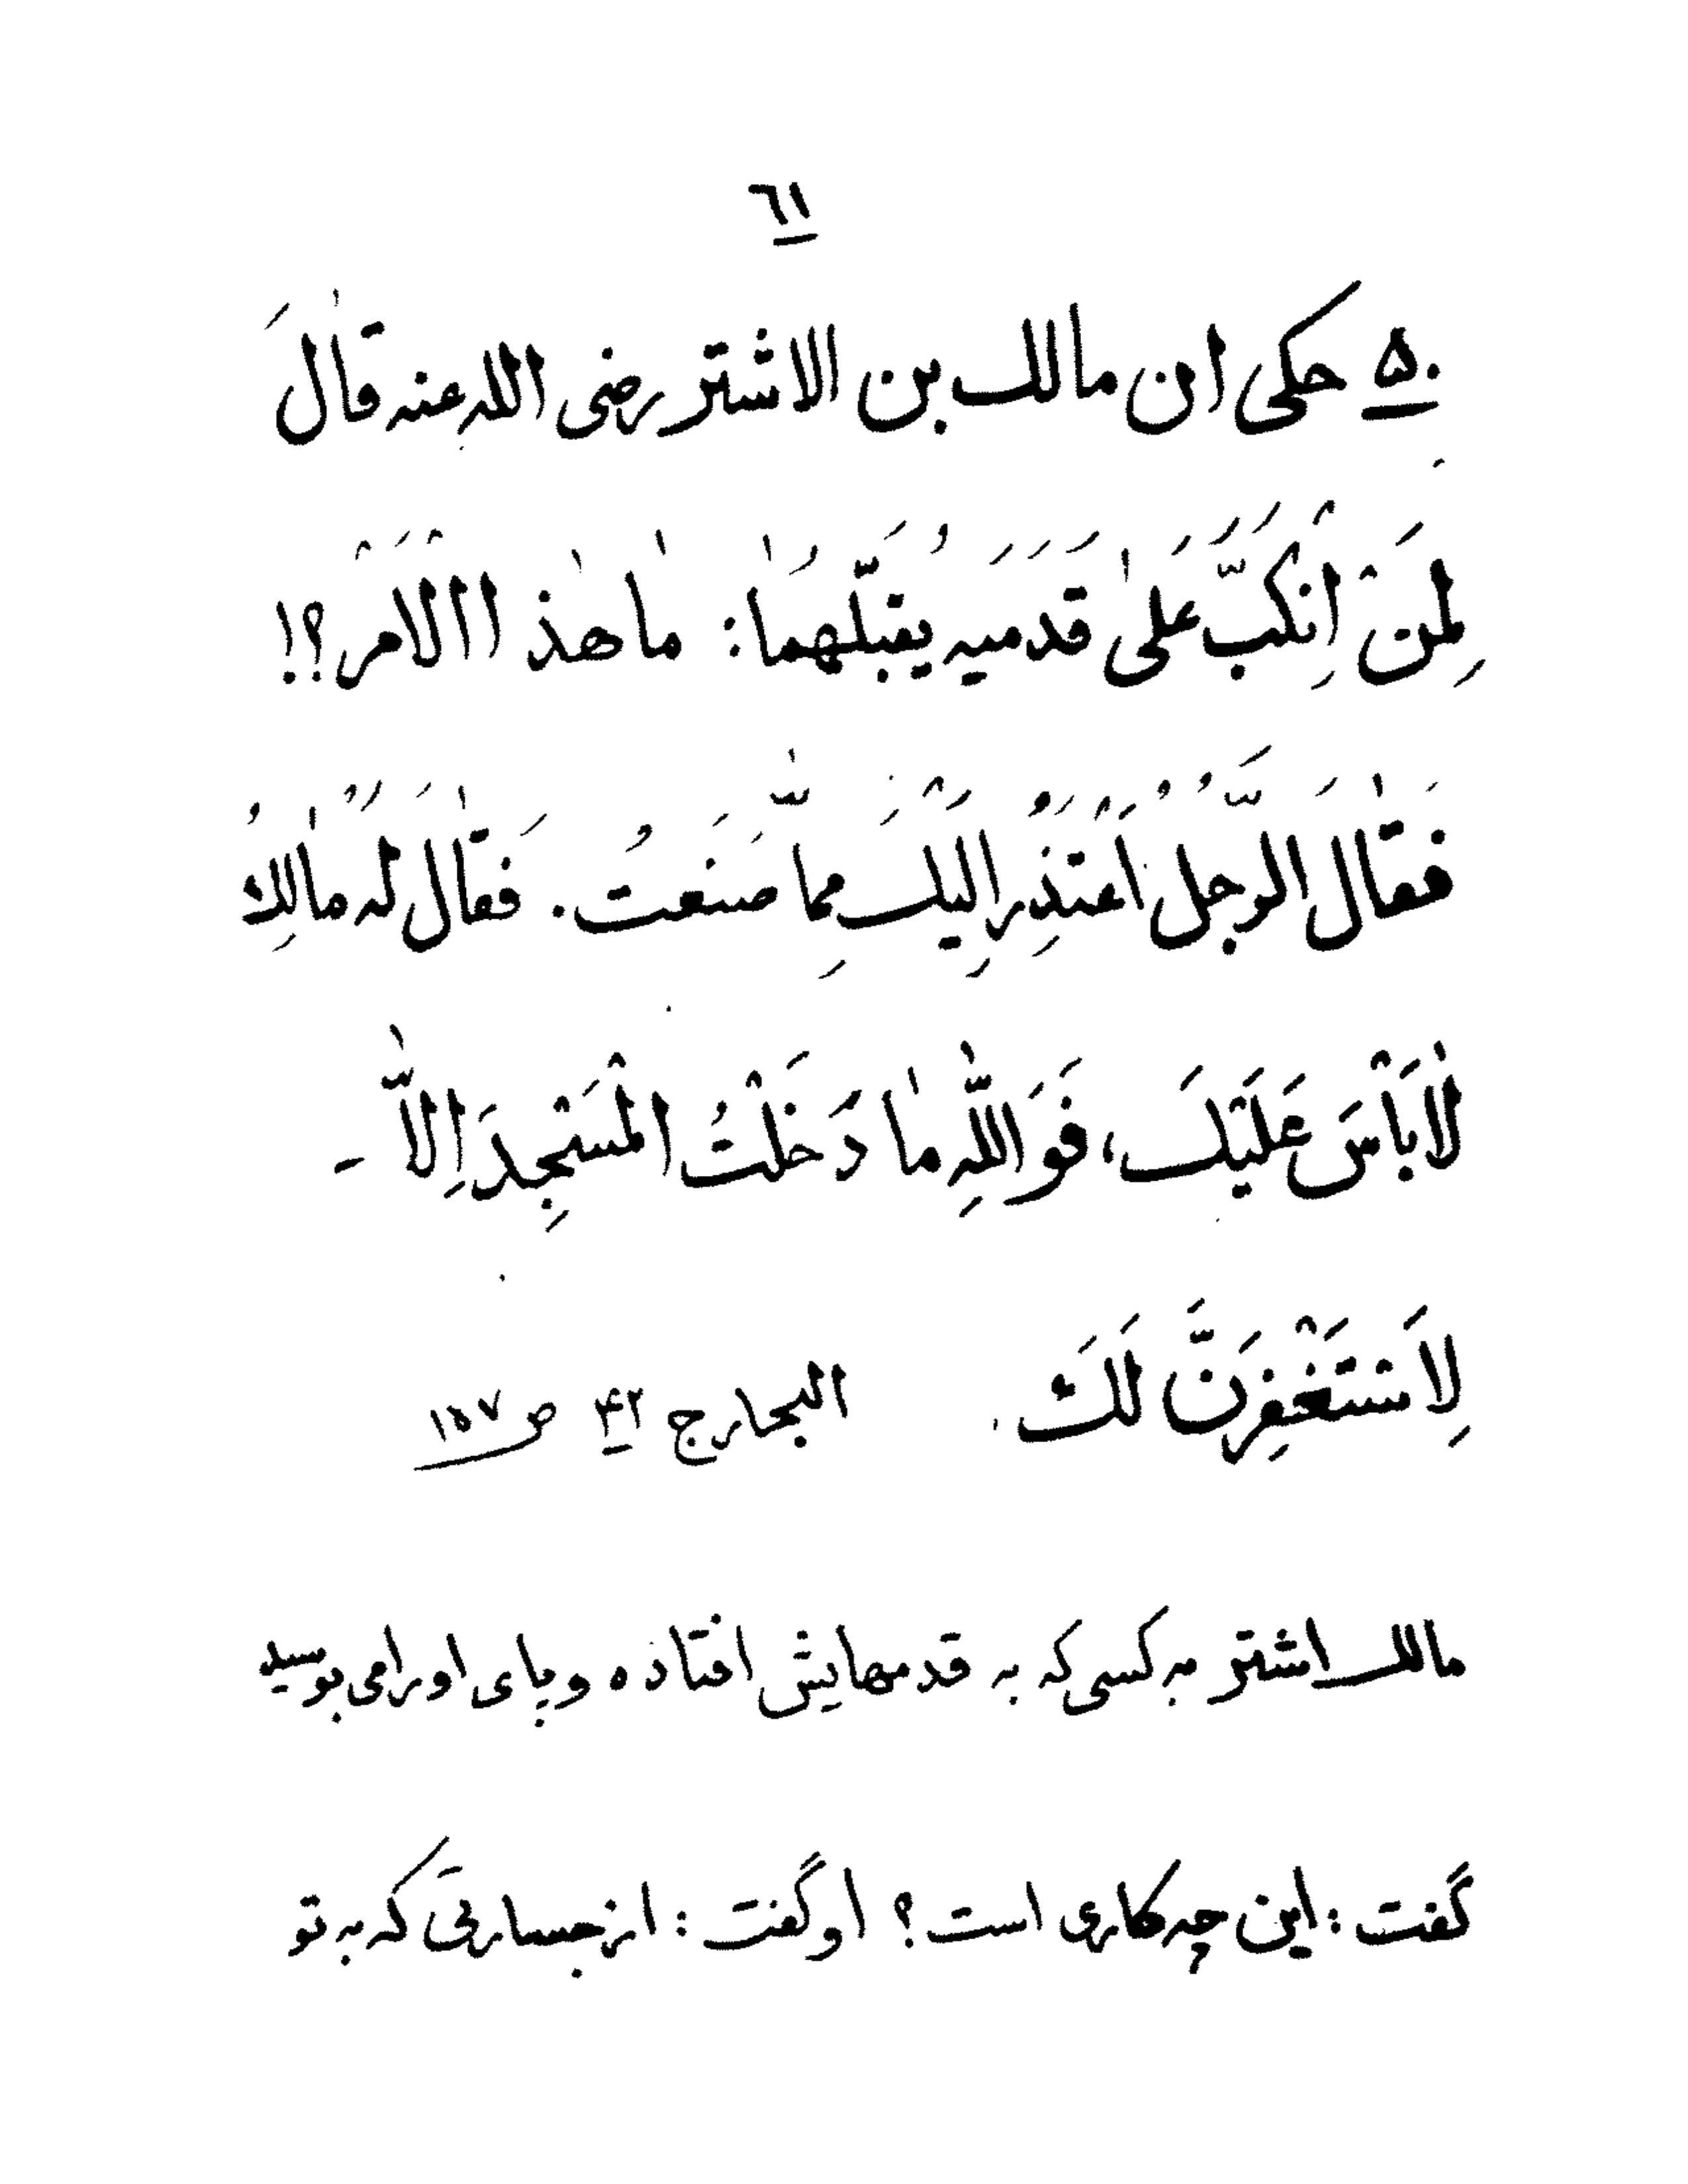 ٦١
۵۰ حكى ان مالك بن الاشتر رضى الله عنه قٰالَ
لِمَنْ اِنْكَبَّ عَلىٰ قَدَمَيه يُقَبّلُهُمَا: مٰا هٰذَا الْاَمْر؟!
فَقٰالَ الرَّجُلُ اَعْتَذِرُ اِلَيْكَ مِمّٰا صَنَعتُ. فَقٰالَ لَهُ مٰالِكُ
لٰابَأْسَ عَلَيْكَ، فَوَاللّٰهِ مٰا دَخَلْتُ الْمَسْجِدَ اِلاّٰ -
لِاَسْتَغْفِرَنَّ لَكَ. البحار ج ۴۲ ص ۱۵۷
مالك اشتر به كسى كه به قدمهايش افتاده و پاى او را مى بوسيد
گفت: اين چه كارى است؟ او گفت: از جسارتى كه به تو